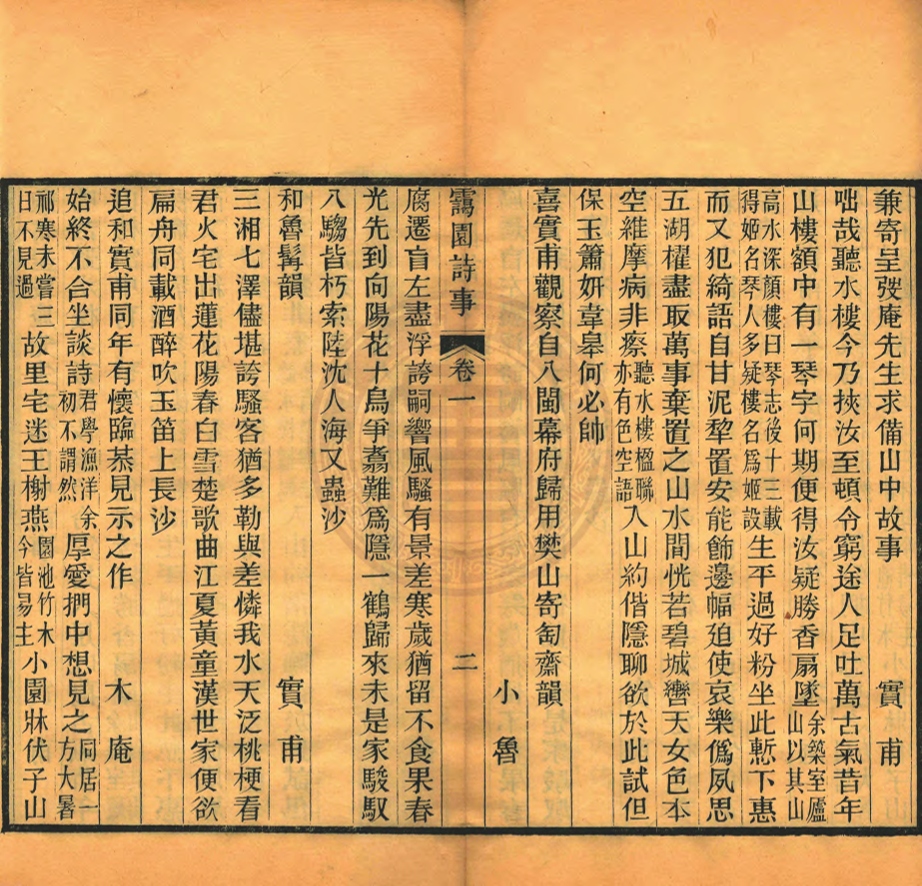 兼寄呈弢庵先生求備山中故事 實甫
咄哉聽水樓今乃挾汝至頓令窮途人足吐萬古氣昔年
山樓額中有一琴字何期便得汝疑勝香扇墜余築室廬山以其山
高水深顏樓曰琴志後十三載得姬名琴人多疑樓名爲姬設生平過好粉坐此慙下惠
而又犯綺語自甘泥犂置安能飾邊幅廹使哀樂僞夙思
五湖櫂盡取萬事棄置之山水間恍若碧城轡天女色本
空維摩病非瘵聽水樓楹聯亦有色空語入山約偕隱聊欲於此試但
保玉簫妍韋皋何必帥
喜實甫觀察自八閩幕府歸用樊山寄匋齋韻
小魯
靄園詩事 卷一 二
腐遷盲左盡浮誇嗣響風騷有景差寒歲猶留不食果春
光先到向陽花十鳥爭翥難爲隱一鶴歸來未是家駿馭
八騶皆朽索陸沈人海又蟲沙
和魯髯韻 實甫
三湘七澤儘堪誇騷客猶多勒與差憐我水天泛桃梗看
君火宅出蓮花陽春白雪楚歌曲江夏黃童漢世家便欲
扁舟同載酒醉吹玉笛上長沙
追和實甫同年有懷臨桼見示之作 木庵
始終不合坐談詩君學漁洋余初不謂然厚愛捫中想見之同居一方大暑
祁寒未嘗三日不見過故里宅迷王榭燕園池竹木今皆易主小園牀伏子山